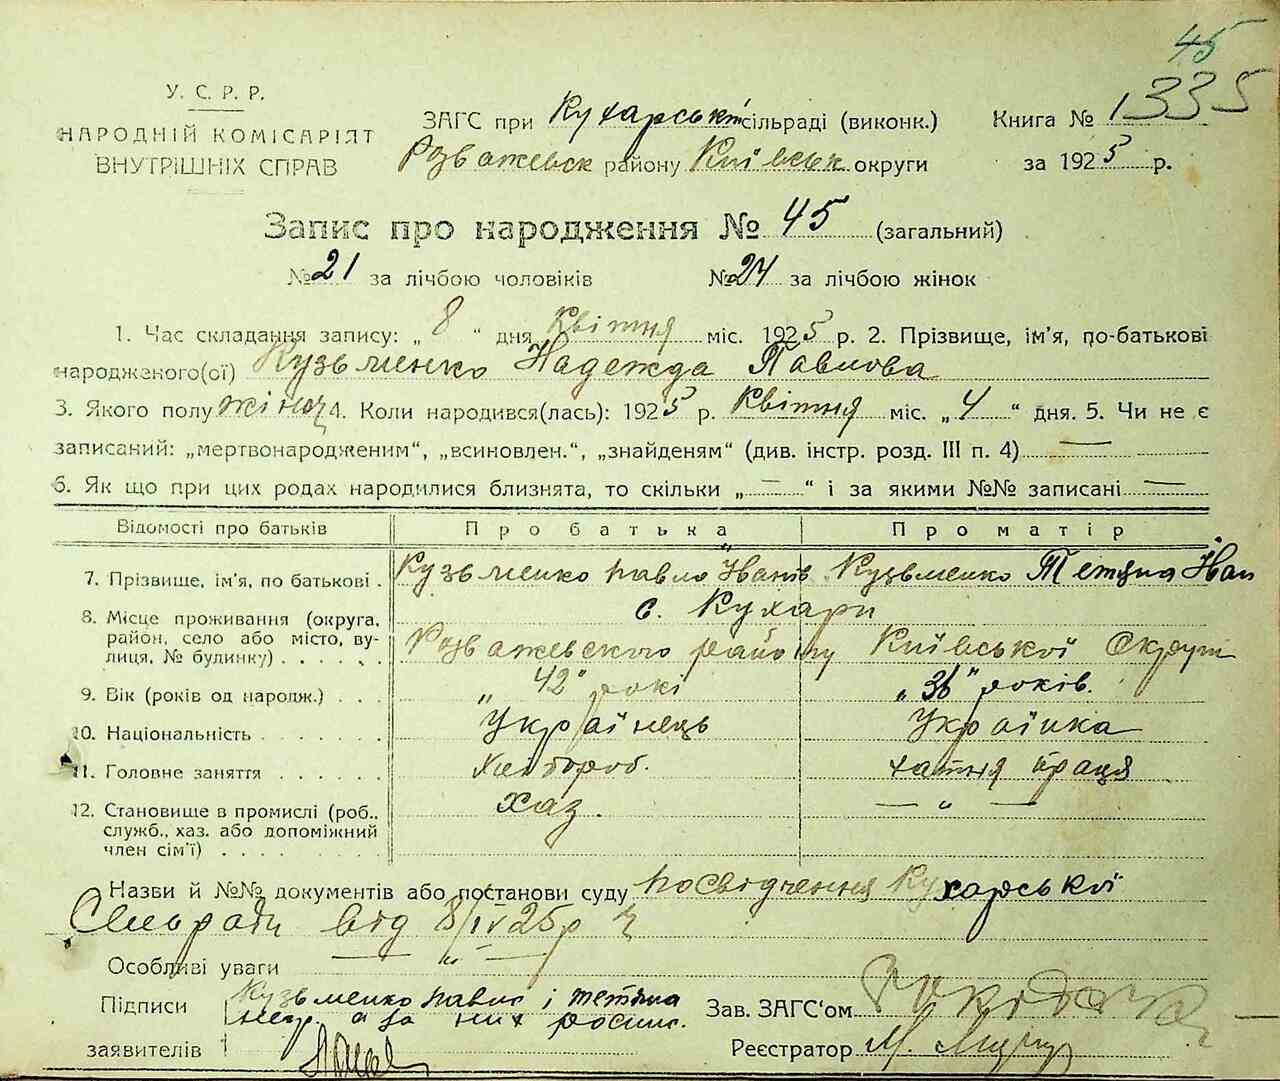 45
У. С. Р. Р.
НАРОДНІЙ КОМІСАРІЯТ
ВНУТРІШНІХ СПРАВ
ЗАГС при Кухарській сільраді (виконк.)
Розважевськ району Київськ округи
Книга № 1335
за 1925 р.
Запис про народження № 45 (загальний)
№ 21 за лічбою чоловіків № 24 за лічбою жінок
1. Час складання запису: „ 8 “ дня Квітня міс. 1925 р. 2. Прізвище, ім'я, по-батькові
народженого(ої) Кузьменко Надежда Павлова
3. Якого полу жіноц 4. Коли народився(лась): 1925 р. Квітня міс. „ 4 “ дня. 5. Чи не є
записаний: „мертвонародженим“, „всиновлен.“, „знайденям“ (див. інстр. розд. III п. 4) —
6. Як що при цих родах народилися близнята, то скільки „ — “ і за якими №№ записані —
Відомості про батьків Про батька Про матір
7. Прізвище, ім'я, по батькові . Кузьменко Павло Іванів Кузьменко Тетяна Іван
8. Місце проживання (округа, с. Кухари
район, село або місто, ву- Розважевского району Київської Округи
лиця, № будинку) . . . . .
9. Вік (років од народж.) . . . „ 42 “ рокі „ 36 “ років.
10. Національність . . . . . Українець Українка
11. Головне заняття . . . . . . Хлібороб. хатня праця
12. Становище в промислі (роб., Хаз. — „ —
служб., хаз. або допоміжний
член сім'ї) . . . . . . . .
Назви й №№ документів або постанови суду Посвідчення Кухарської
Сільради від 8/IV 25 р
Особливі уваги — „ —
Підписи Кузьменко Павло і Тетяна
негр. а за них роспис.
заявителів
Зав. ЗАГС‘ом
Реєстратор М.